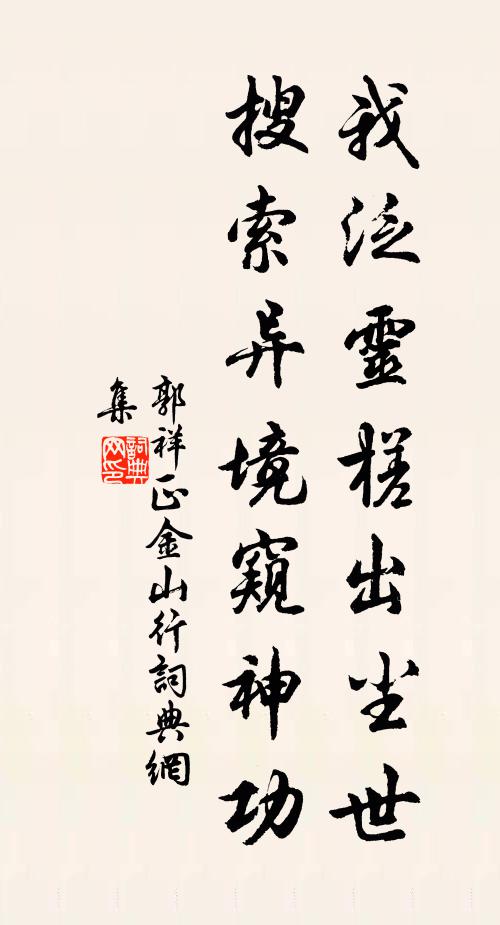 我泛靈槎出尘世
搜索异境窺神功
郭祥正金山行詞典網
集
詞典
网印